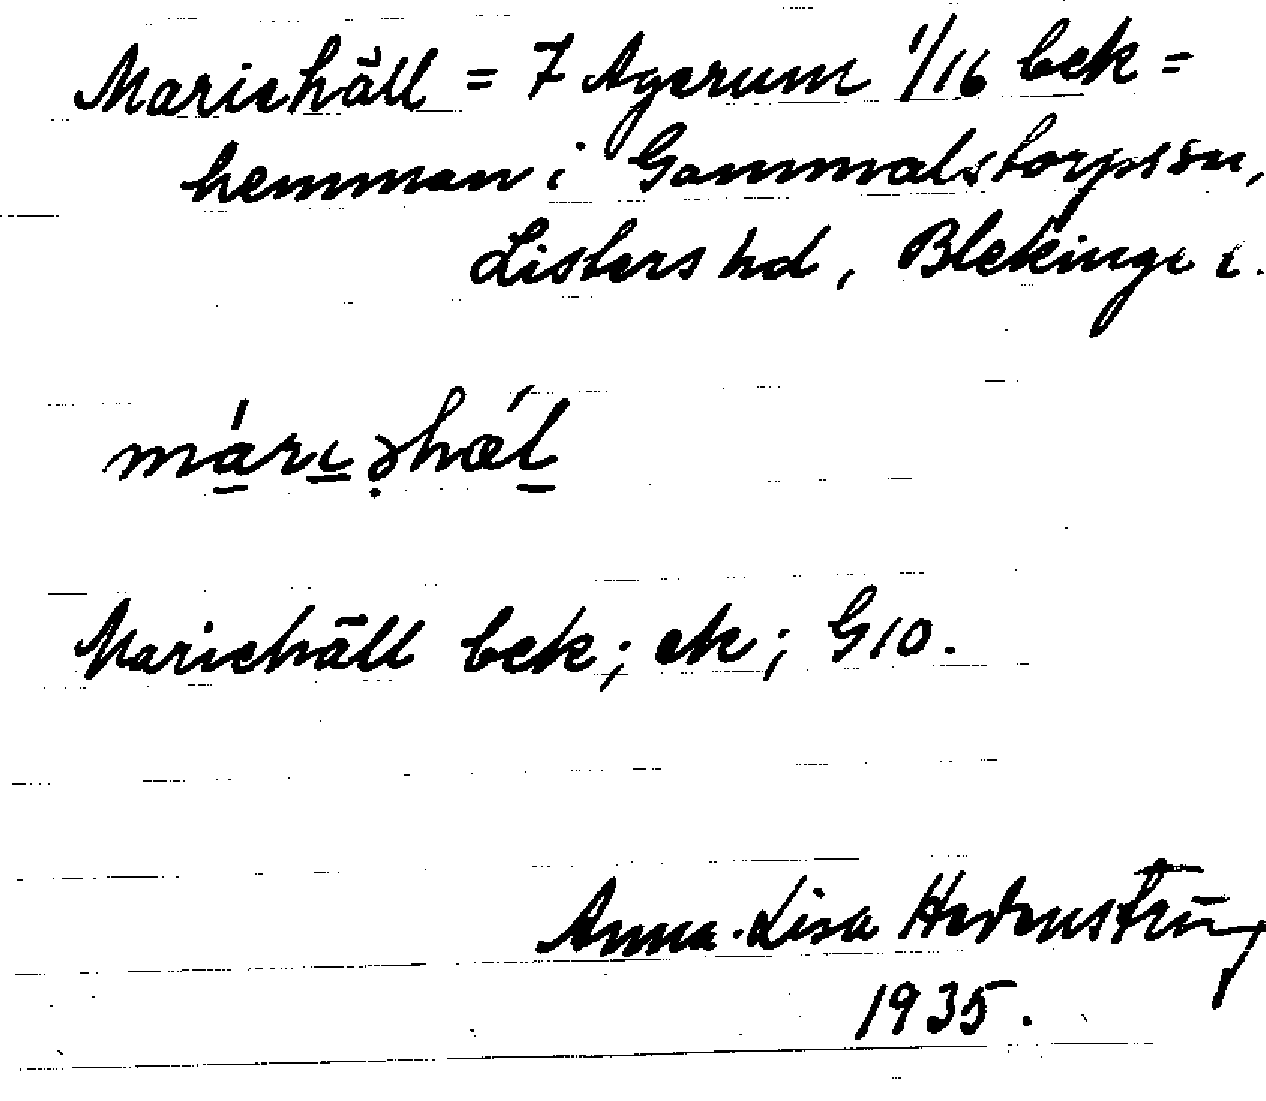 Mariehäll = 7 Agerum 1/16 bek=
hemman i Gammalstorps sn,
Listers hd, Blekinge l.
márıəhǽl
Mariehäll bek; ek; G10.
Anna-Lisa Hedenström
1935.